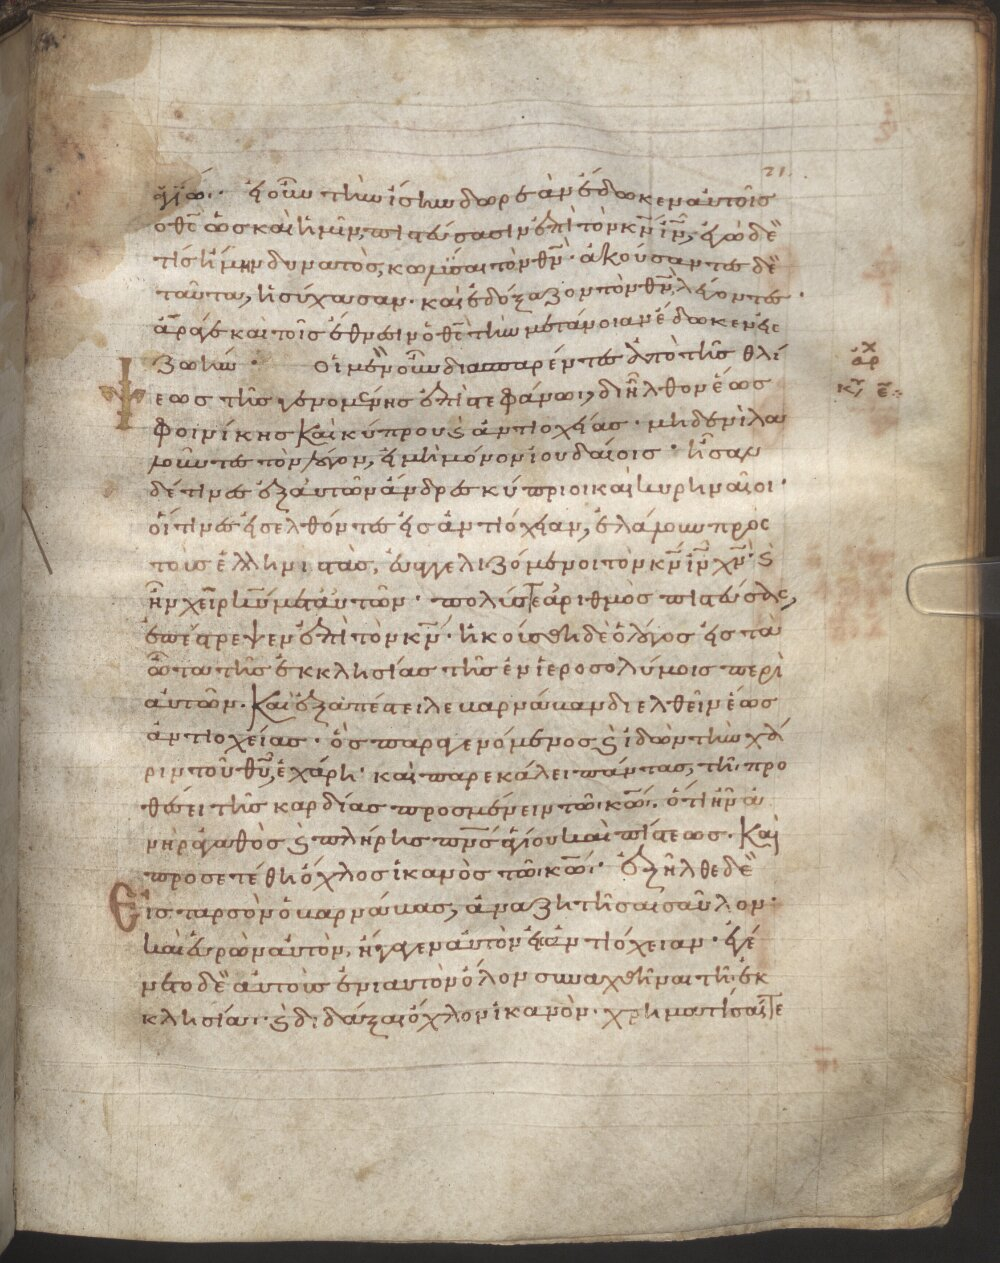 21
ἁγίω· εἰ οὖν τὴν ἴσην δωρε ὰν ἔδωκεν αὐτοῖς
ὁ θς ὡς καὶ ἡμῖν, πιστεύσασιν ἐπὶ τὸν κν ιν, ἐγὼ δὲ
τίς ἤμην δυνατὸς, κωλῦσαι τὸν θν· ἀκούσαντες δὲ
ταῦτα, ἡσύχασαν· καὶ ἐδόξαζον τὸν θν, λέγοντες·
ἄραγε καὶ τοῖς ἔθνεσιν ὁ θς τὴν μετάνοιαν ἔδωκεν εἰς
ζωήν· Οἱ μὲν οὖν διασπαρέντες ἀπὸ τῆς θλί
αρχ
κυ, ε
εως τῆς γενομένης ἐπὶ στεφάνωι, διῆλθον ἕως
φοινίκης καὶ κύπρου ϗ ἀντιοχείας· μηδενὶ λα
λοῦντες τὸν λόγον, εἰ μὴ μόνον ἰουδαίοις· ἦσαν
δέ τινες ἐξ αὐτῶν ἄνδρες κύπριοι καὶ κυρηναῖοι·
οἵτινες εἰσελθόντες εἰς ἀντιόχειαν, ἐλάλουν πρὸς
τοὺς ἑλληνιστὰς, εὐαγγελιζόμενοι τὸν κν ιν χν· ϗ
ἦν χεὶρ κυ μετ αὐτῶν· πολύς τε ἀριθμὸς πιστεύσας,
ἐπέστρεψεν ἐπὶ τὸν κν· ἠκούσθη δὲ ὁ λόγος εἰς τὰ
ὦτα τῆς ἐκκλησίας τῆς ἐν ἱεροσολύμοις περὶ
αὐτῶν. Καὶ ἐξαπέστειλε βαρνάβαν διελθεῖν ἕως
ἀντιοχείας· ὃς παραγενόμενος ϗ ἰδὼν τὴν χά
ριν τοῦ θυ, ἐχάρη· καὶ παρεκάλει πάντας, τῆι προ
θέσει τῆς καρδίας προσμένειν τῶι κω· ὅτι ἦν ἀ
νὴρ ἀγαθὸς ϗ πλήρης πνς ἁγίου καὶ πίστεως. Καὶ
προσετέθη ὄχλος ἱκανὸς τῶι κω· ἐξῆλθε δὲ
Εἰς ταρσὸν ὁ βαρνάβας, ἀναζητῆσαι σαῦλον·
καὶ εὑρὼν αὐτὸν, ἤγαγεν αὐτὸν εἰς ἀντιόχειαν· ἐγέ
νετο δὲ αὐτοὺς ἐνιαυτὸν ὅλον συναχθῆναι τῆι ἐκ
κλησίαι· ϗ διδάξαι ὄχλον ἱκανὸν· χρηματίσαι τε